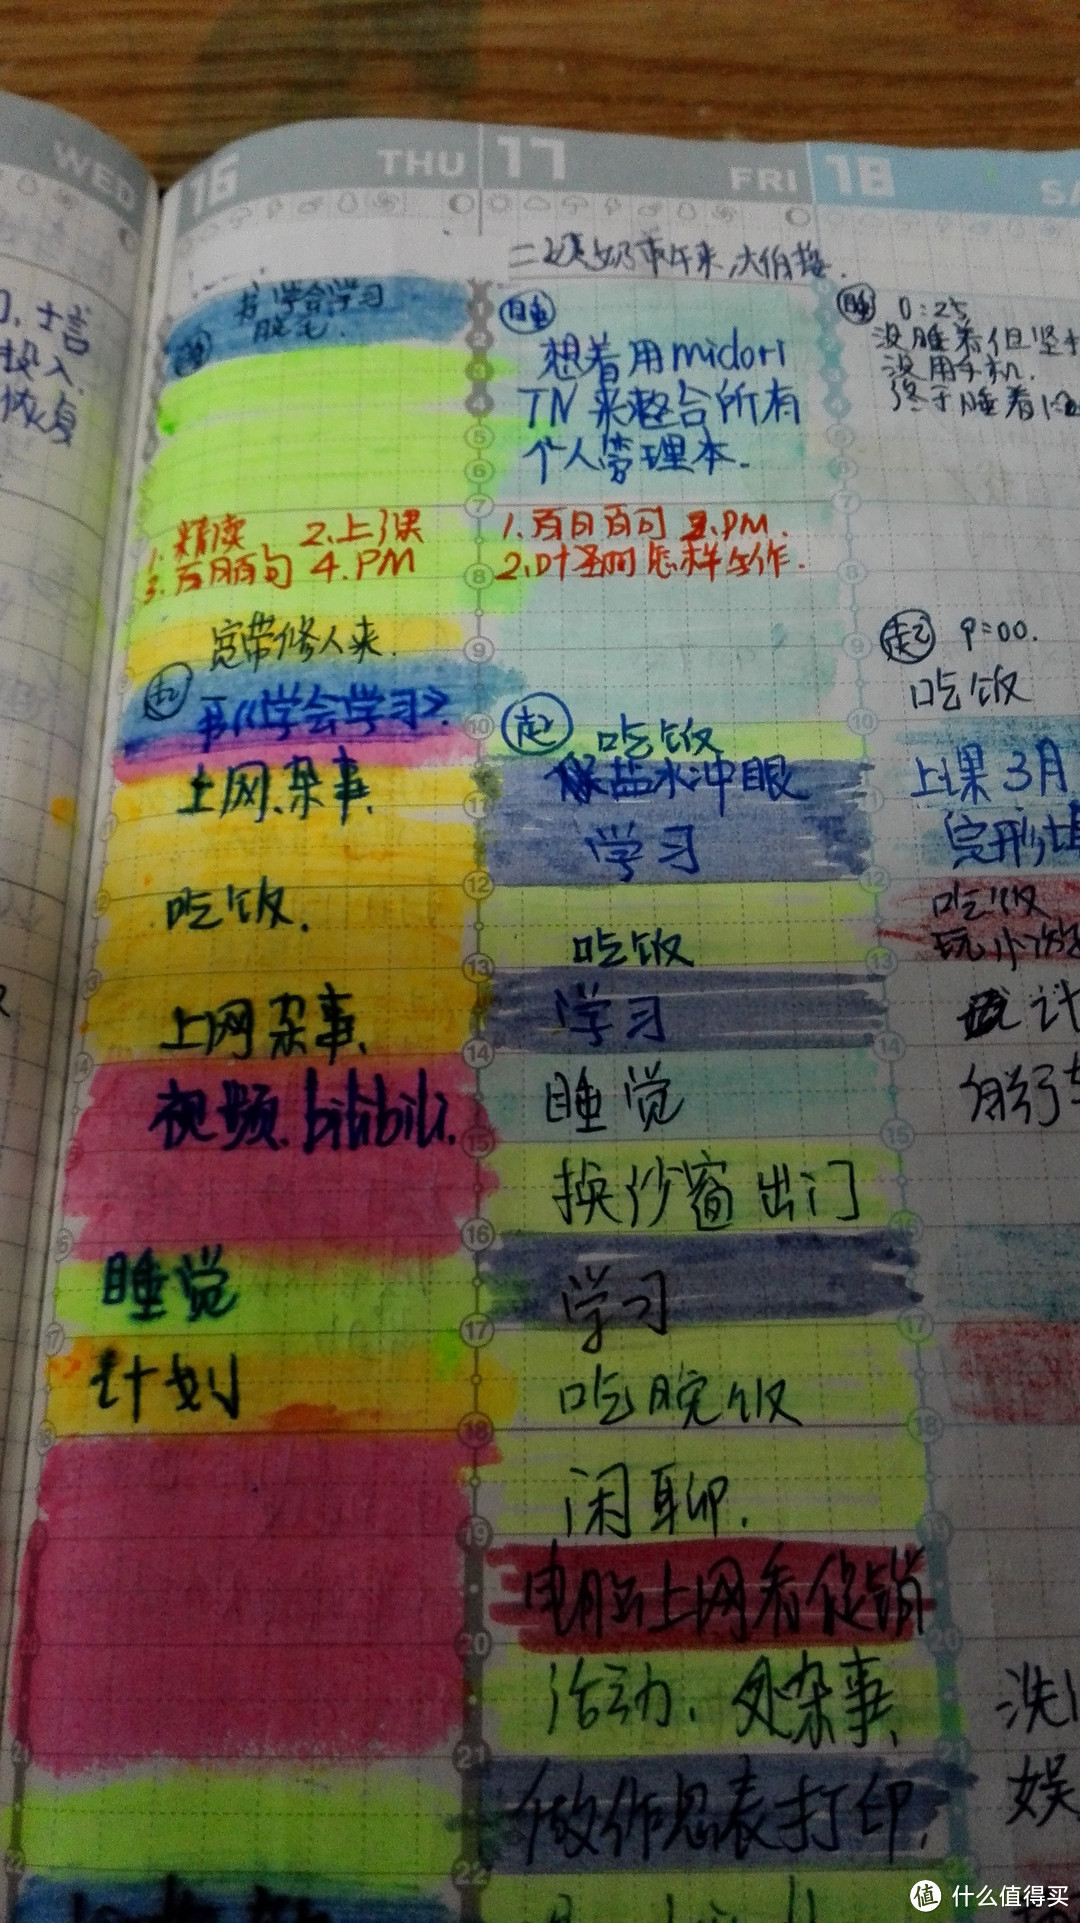 WED
16 THU
17 FRI
18
书 学会学习
1. 精读 2. 上课
3. 百日百句 4. PM
宽带修人来.
起
书《学会学习》.
上网.杂事.
吃饭.
上网杂事.
视频.bilibili.
睡觉
计划
睡
想着用midori
TN来整合所有
个人管理本.
1. 百日百句 3. PM.
2. 叶圣陶怎样写作.
起 吃饭
盐水冲眼
学习
吃饭
学习
睡觉
换纱窗 出门
学习
吃晚饭
闲聊.
电脑上网看促销
活动. 处杂事.
做作息表打印.
睡 0:25
没睡着但坚
没用手机.
终于睡着
起 9:00.
吃饭
上课 3月
完形
吃饭
玩小
计
洗
娱
值 什么值得买